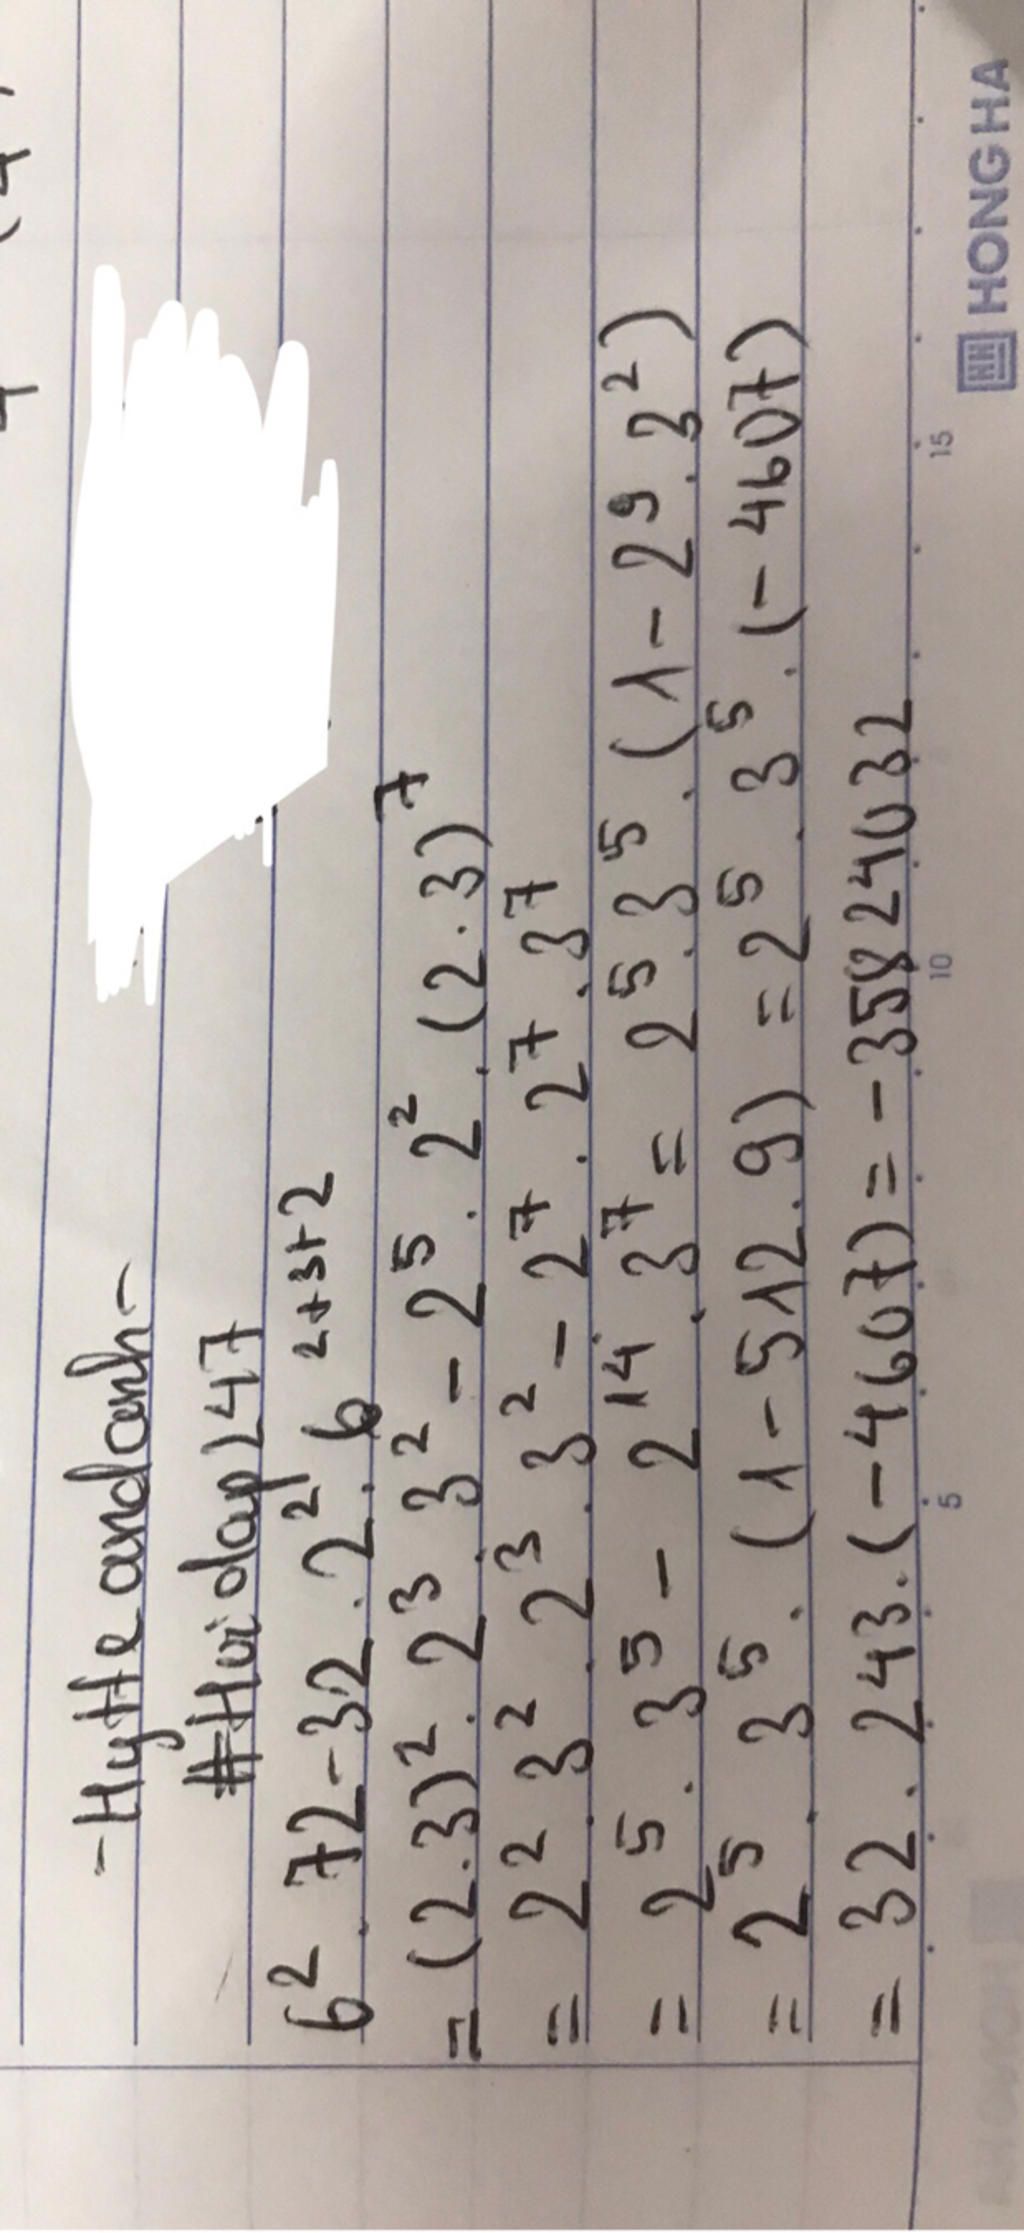 -Hytteandanh-
#Hoidap247
6² . 72 - 32 . 2² . 6²⁺³⁺²
= (2.3)² . 2³ . 3² - 2⁵ . 2² . (2.3)⁷
= 2² . 3² . 2³ . 3² - 2⁷ . 2⁷ . 3⁷
= 2⁵ . 3⁵ - 2¹⁴ . 3⁷ = 2⁵ . 3⁵ . (1 - 2⁹ . 3²)
= 2⁵ . 3⁵ . (1 - 512 . 9) = 2⁵ . 3⁵ . (-4607)
= 32 . 243 . (-4607) = -35824032
5 10 15
HONG HA